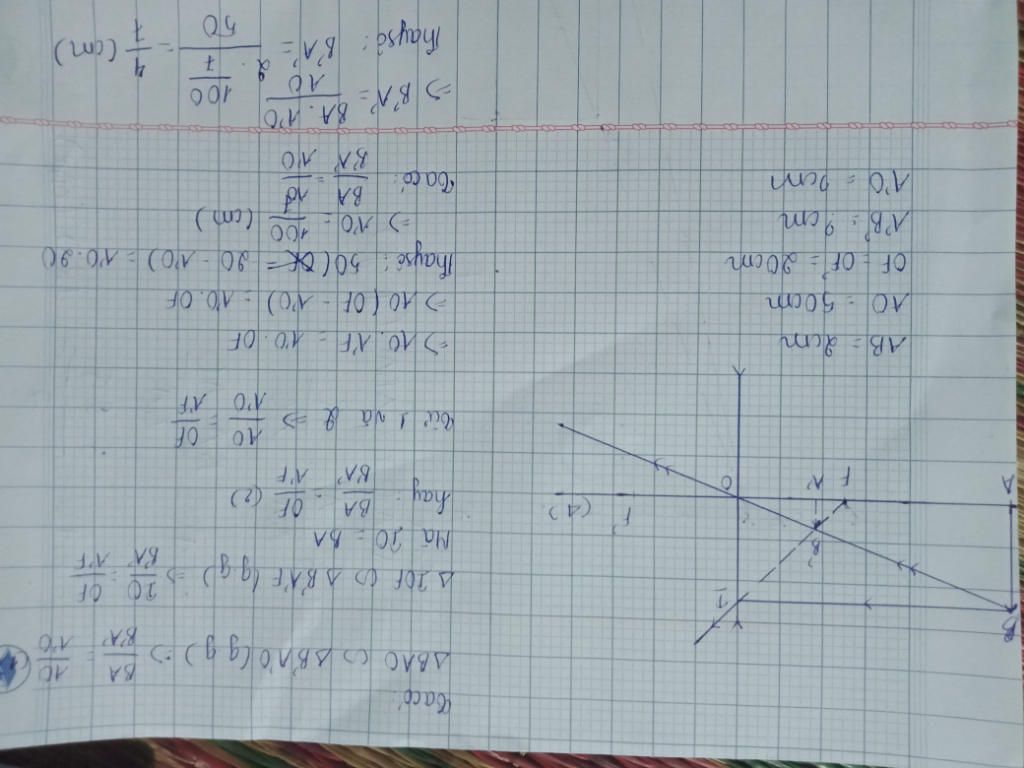 B
I
B'
A
F
A'
O
F'
(Δ)
AB = 2cm
AO = 50cm
OF = OF' = 20cm
A'B' = ? cm
A'O = ? cm
Ta có:
ΔBAO ∽ ΔB'A'O (g.g) => BA/B'A' = AO/A'O
ΔIOF ∽ ΔB'A'F (g.g) => IO/B'A' = OF/A'F
Mà IO = BA
hay: BA/B'A' = OF/A'F (2)
Từ 1 và 2 => AO/A'O = OF/A'F
=> AO. A'F = A'O. OF
=> AO (OF - A'O) = A'O. OF
Thay số: 50 (20 - A'O) = A'O. 20
=> A'O = 100/7 (cm)
Ta có: BA/B'A' = AO/A'O
=> B'A' = BA. A'O/AO
Thay số: B'A' = 2. 100/7/50 = 4/7 (cm)